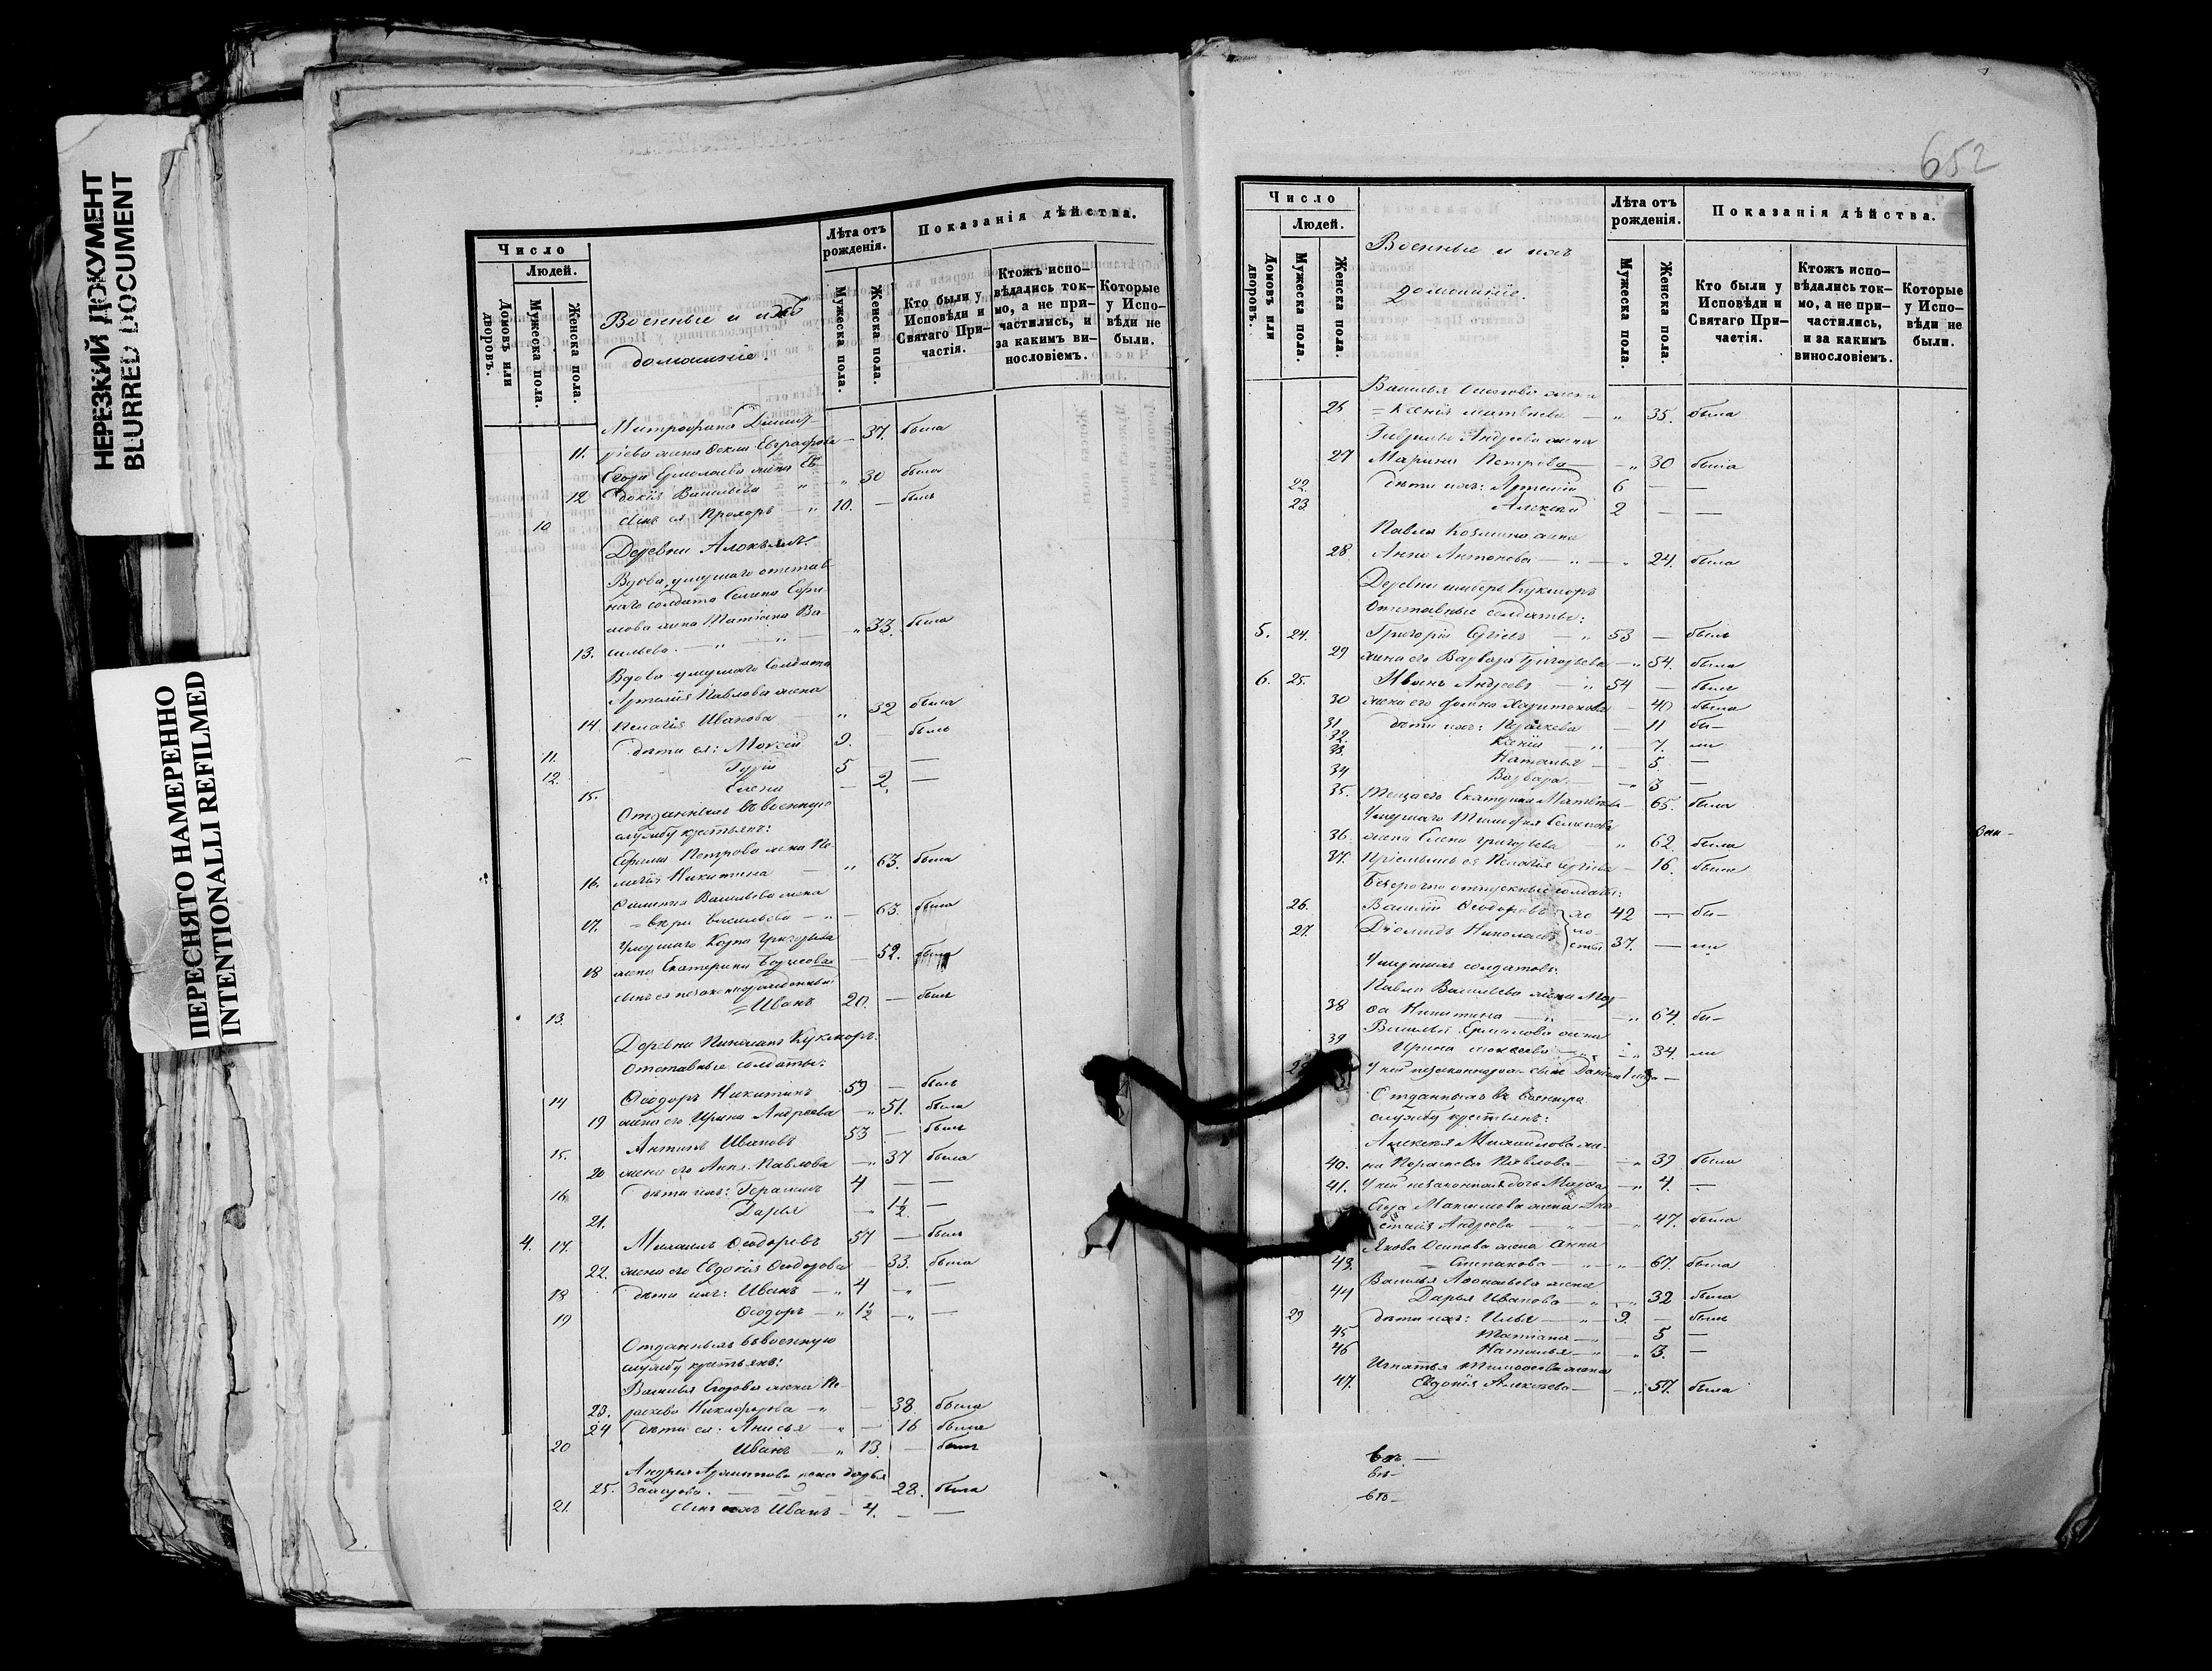 НЕРЕЗКИЙ ДОКУМЕНТ
BLURRED DOCUMENT
ПЕРЕСНЯТО НАМЕРЕННО
INTENTIONALLI REFILMED
Число
Людей.
Домовъ или дворовъ.
Мужеска пола.
Женска пола.
Военные и ихъ
домашніе.
Лѣта отъ рожденія.
Мужеска пола.
Женска пола.
Показанія дѣйства.
Кто были у Исповѣди и Святаго Причастія.
Ктожъ исповѣдались токмо, а не причастились, и за какимъ винословіемъ.
Которые у Исповѣди не были.
Митрофана Дмит-
11. ріева жена Ѳекла Евграфова — 37. была
Егора Ермолаева жена Ев-
12 докія Васильева „ — „ 30 была
10 сынъ ея Прохоръ — „ 10. — былъ
Деревни
Вдова, умершаго отстав
наго солдата
жена Татіана Ва-
13. сильева. — „ — „ 33. была
Вдова умершаго Солдата
Артемія Павлова жена
14. Пелагія Иванова — „ 32 была
11. дѣти ея: Моисей 9. — былъ
12. Гурій 5 —
15. Елена — 2. —
Отданныхъ въ военную
службу крестьянъ:
Ефима Петрова жена Пе-
16. лагія Никитина — „ 63. была
Филиппа Васильева жена
17. Васильева — „ — 63. была
Умершаго Карпа Григорьева
18 жена Екатерина Борисова — 52. была
сынъ ея незаконнорожденный
13. = Иванъ 20. — былъ
Деревни Кукморъ.
Отставные солдаты:
14 Ѳеодоръ Никитинъ 59 — былъ
19 жена его Ирина Андреева — „ 51. была
15. Антипъ Ивановъ 53 — былъ
20 жена его Анна Павлова — „ 37 была
16. дѣти ихъ: Герасимъ 4 — —
21. Дарья — 1½. —
4. 17. Михаилъ Ѳеодоровъ 57 — былъ
22. жена его Евдокія Ѳеодорова — 33. была
18 дѣти ихъ: Иванъ — „ 4 — „ —
19 Ѳеодоръ — „ 1½ — „ —
Отданныхъ въ военную
службу крестьянъ:
Василья Егорова жена Па-
23. раскева Никифорова — „ — 38. была
24 дѣти ея: Анисья — „ — 16 была
20 Иванъ — „ 13. — былъ
Андрея жена Дарья
25. Захарова. — 28. была
21. сынъ ихъ Иванъ — 4. — —
652
Число
Людей.
Домовъ или дворовъ.
Мужеска пола.
Женска пола.
Военные и ихъ
домашніе.
Лѣта отъ рожденія.
Мужеска пола.
Женска пола.
Показанія дѣйства.
Кто были у Исповѣди и Святаго Причастія.
Ктожъ исповѣдались токмо, а не причастились, и за какимъ винословіемъ.
Которые у Исповѣди не были.
Василья жена
26 = Ксенія Матвѣева — „ 35. была
Гавріила Андреева жена
27 Марина Петрова — — „ 30 была
22. дѣти ихъ: Артемій 6 — —
23. Алексѣй 2 — —
Павла Козмина жена
28 Анна Антонова — „ — „ 24. была
Деревни Кукморъ
Отставные солдаты:
5. 24. Григорій Сергіевъ — „ 53 — былъ
29 жена его Варвара Григорьева — „ 54. была
6. 25. Иванъ Андреевъ — „ 54 — былъ
30 жена его Домна Харитонова — 40 была
31. дѣти ихъ: Параскева — 11 бы—
32. Ксенія — „ — 7. ли
33. Наталья — 5. —
34 Варвара — — „ 3 —
35. Теща его Екатерина Матвѣева — 65. была
Умершаго Тимофея Семенова
36. жена Елена Григорьева — „ 62. была
37. Пріемышъ ея Пелагія Сергіева — 16. была
Безсрочно отпускные солдаты:
26. Василій Ѳеодоровъ } хо 42 — бы—
27. Діомидъ Николаевъ } ло-сты 37. — ли
Умершихъ солдатовъ:
Павла Васильева жена Мар-
38 ѳа Никитина — „ — „ 64. бы—
Василья Ермилова жена
39 Ирина — „ 34. ли
У ней незаконнорож. сынъ
Отданныхъ въ военную
службу крестьянъ:
Алексѣя Михайлова же-
40. на Параскева Павлова — — „ 39 была
41. У ней незаконная дочь Марѳа — „ 4. —
Егора жена Ана-
стасія Андреева — „ — „ 47. была
Якова Осипова жена Анна
43. = Степанова — „ — „ 67. была
Василья Аѳонасьева жена
44 Дарья Иванова — „ — „ 32 была
29 дѣти ихъ: Илья — „ — 9. — былъ
45 Татіана — „ — 5 —
46 Наталья — „ — „ 3. —
Игнатья Тимоѳеева жена
47. Евдокія Алексѣева — — „ 57. была